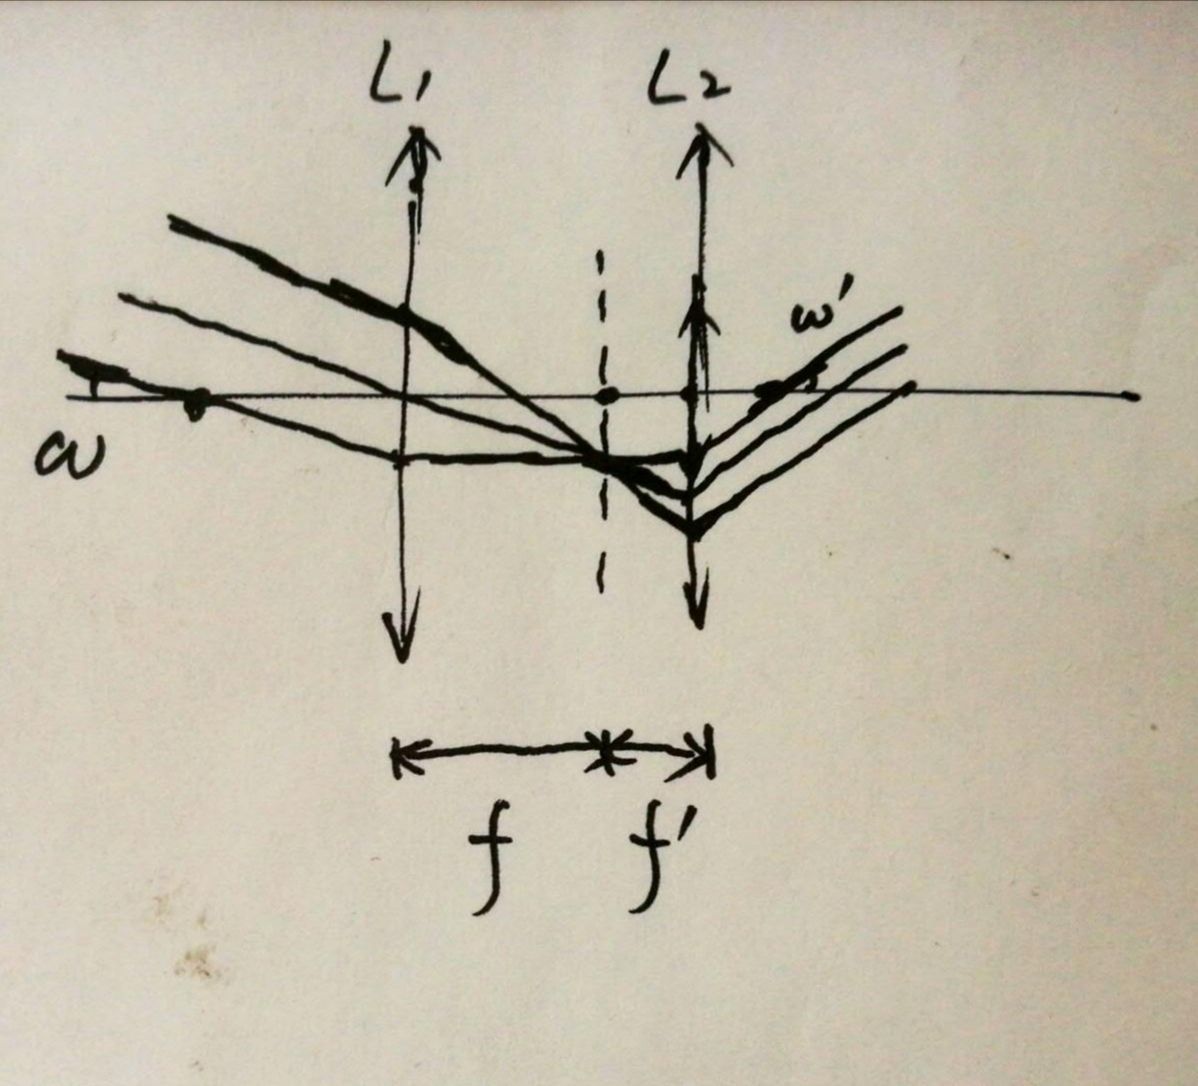 L1 L2
ω'
ω
f f'